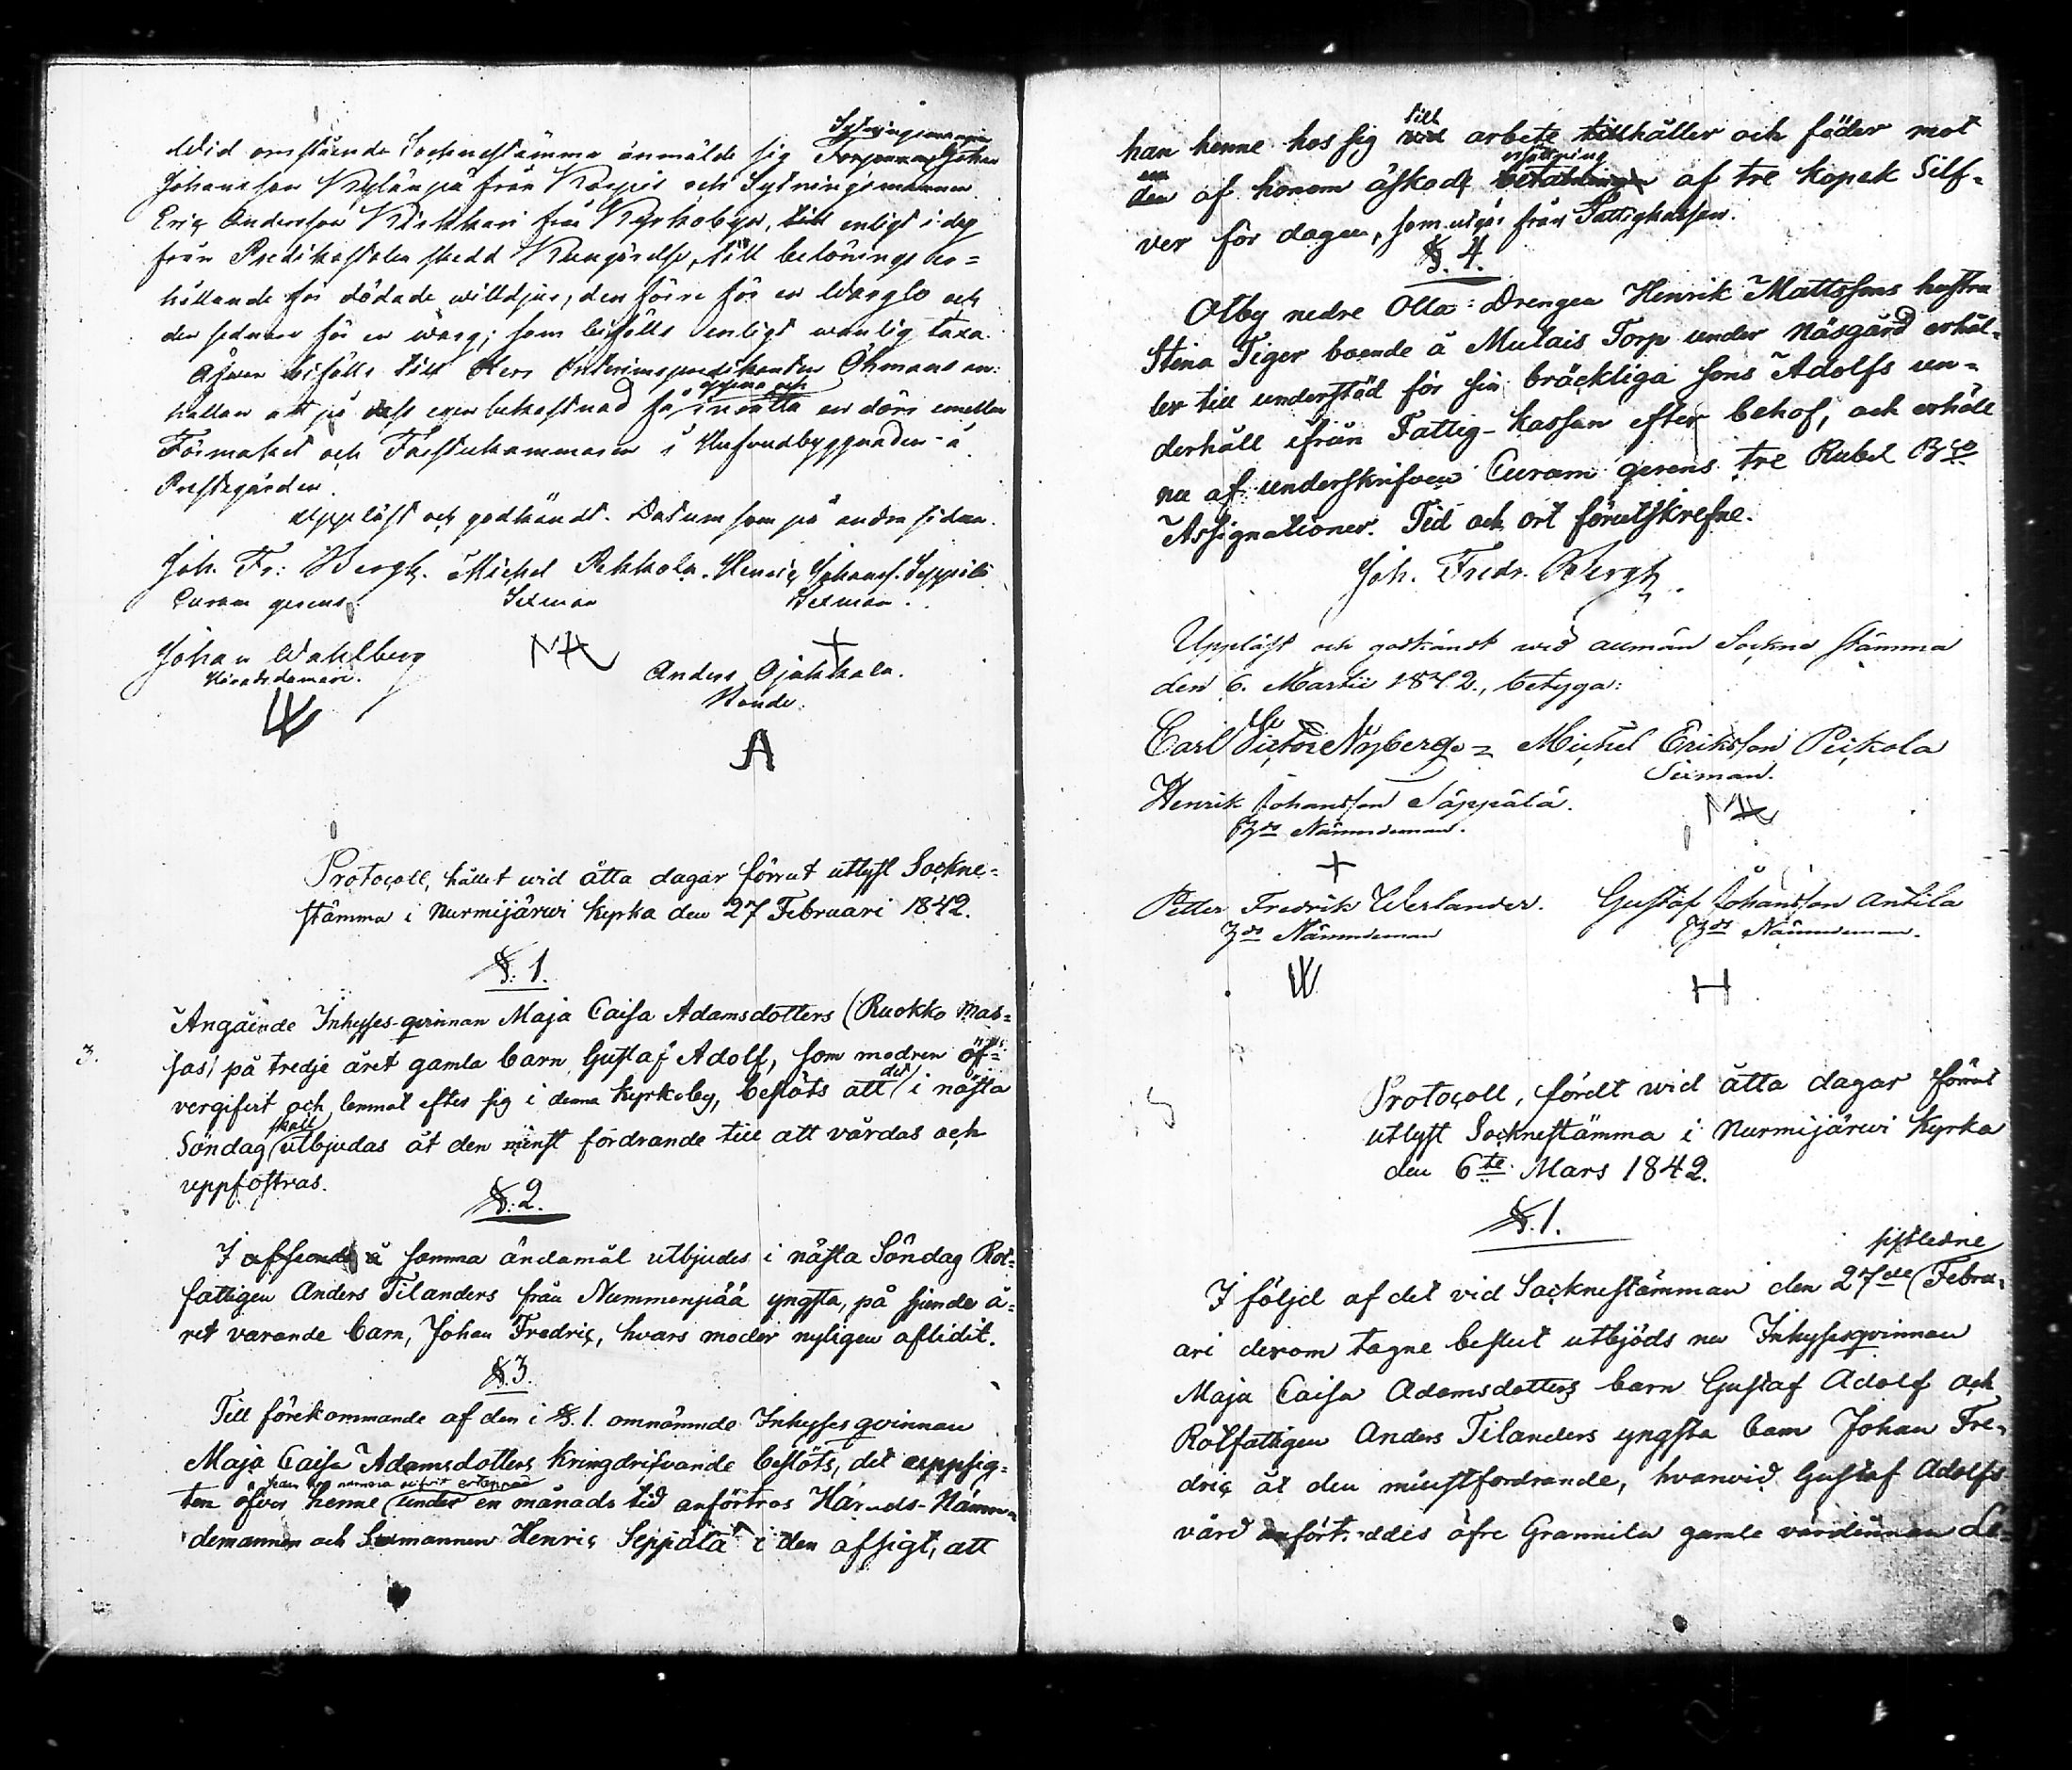 Wid omstående Sockenstämma anmälde sig Sytningsmannen Johan
Johansson Kylänpä från Korpis och Sytningsmannen
Eric Andersson Kärkkäri från Kyrkobyn, enligt i dag
från Predikostolen skedd Kungörelse, till belönings er=
hållande för dödade willdjur, den förre för en Warglo och
den sednare för en warg; som bifölls enligt wanlig taxa.
Äfwen bifölls Herr Interimspredikanten Öhmans an-
hållan att på dess egen bekostnad få öppna och insätta en dörr emellan
Förmaket och Farstukammaren i Hufvudbyggnaden å
Prestegården.
Uppläst och godkändt. Datum som på andra sidan.
Joh. Fr: Bergh. Michel Pekkola. Henric Johanss. Seppälä
Curam gerens. Sexman Sexman.
Johan Wahlberg Anders Ojakkala.
Häradsdomare. Bonde.
A
Protocoll, hållet wid åtta dagar förrut utlyst Sockne=
stämma i Nurmijärwi kyrka den 27 Februari 1842.
§. 1.
Angående Inhyses-qvinnan Maja Caisa Adamsdotters (Ruokko Mas=
3. sas) på tredje året gamla barn Gustaf Adolf, som modren öf=
vergifvit och lemnat efter sig i denna kyrkoby, beslöts att det i nästa
Söndag skall utbjudas åt den minst fordrande till att vårdas och
uppfostras.
§. 2.
I afseende å samma ändamål utbjudes i nästa Söndag Rot=
fattigen Anders Tilanders från Nummenpää yngsta, på sjunde å=
ret varande barn, Johan Fredric, hvars moder nyligen aflidit.
§. 3.
Till förekommande af den i §. 1. omnämnde Inhyses qvinnan
Maja Caisa Adamsdotters kringdrifvande beslöts, det uppsig=
ten öfver henne under en månads tid anförtros Härads-Nämn=
demannen och Sexmannen Henric Seppälä i den afsigt, att
han henne hos sig till arbete håller och föder mot
en af honom äskad ersättning af tre kopek Silf=
ver för dagen, som utgår från Fattigkassan.
§. 4.
Olby nedre Olla: Drengen Henrik Mattssons hustru
Stina Tiger boende å Mulais Torp under Näsgård erhål=
ler till understöd för sin bräckliga sons Adolfs un=
derhåll ifrån Fattig-kassan efter behof, och erhöll
nu af underskrifven Curam gerens tre Rubel B:co
Assignationer. Tid och ort förutskrefne.
Joh. Fredr. Bergh.
Uppläst och godkändt wid allmän Sockne stämma
den 6. Martii 1842., betyga:
Carl Victor Nyberg Michel Eriksson Peikola
Sexman.
Henrik Johansson Säppälä.
Hds Nämndeman.
Petter Fredrik Werlander. Gustaf Johansson Antila
Hds Nämndeman Hds Nämndeman.
H
Protocoll, fördt wid åtta dagar förrut
utlyst Socknestämma i Nurmijärwi Kyrka
den 6te Mars 1842.
§. 1.
I följd af det vid Socknestämman den 27de sistledne Febru=
ari derom tagne beslut utbjöds nu Inhysesqvinnan
Maja Caisa Adamsdotters barn Gustaf Adolf och
Rotfattigen Anders Tilanders yngsta barn Johan Fre=
dric åt den minstfordrande, hvarvid Gustaf Adolfs
vård anförtroddes öfre Grannila gamle värdinnan Le=